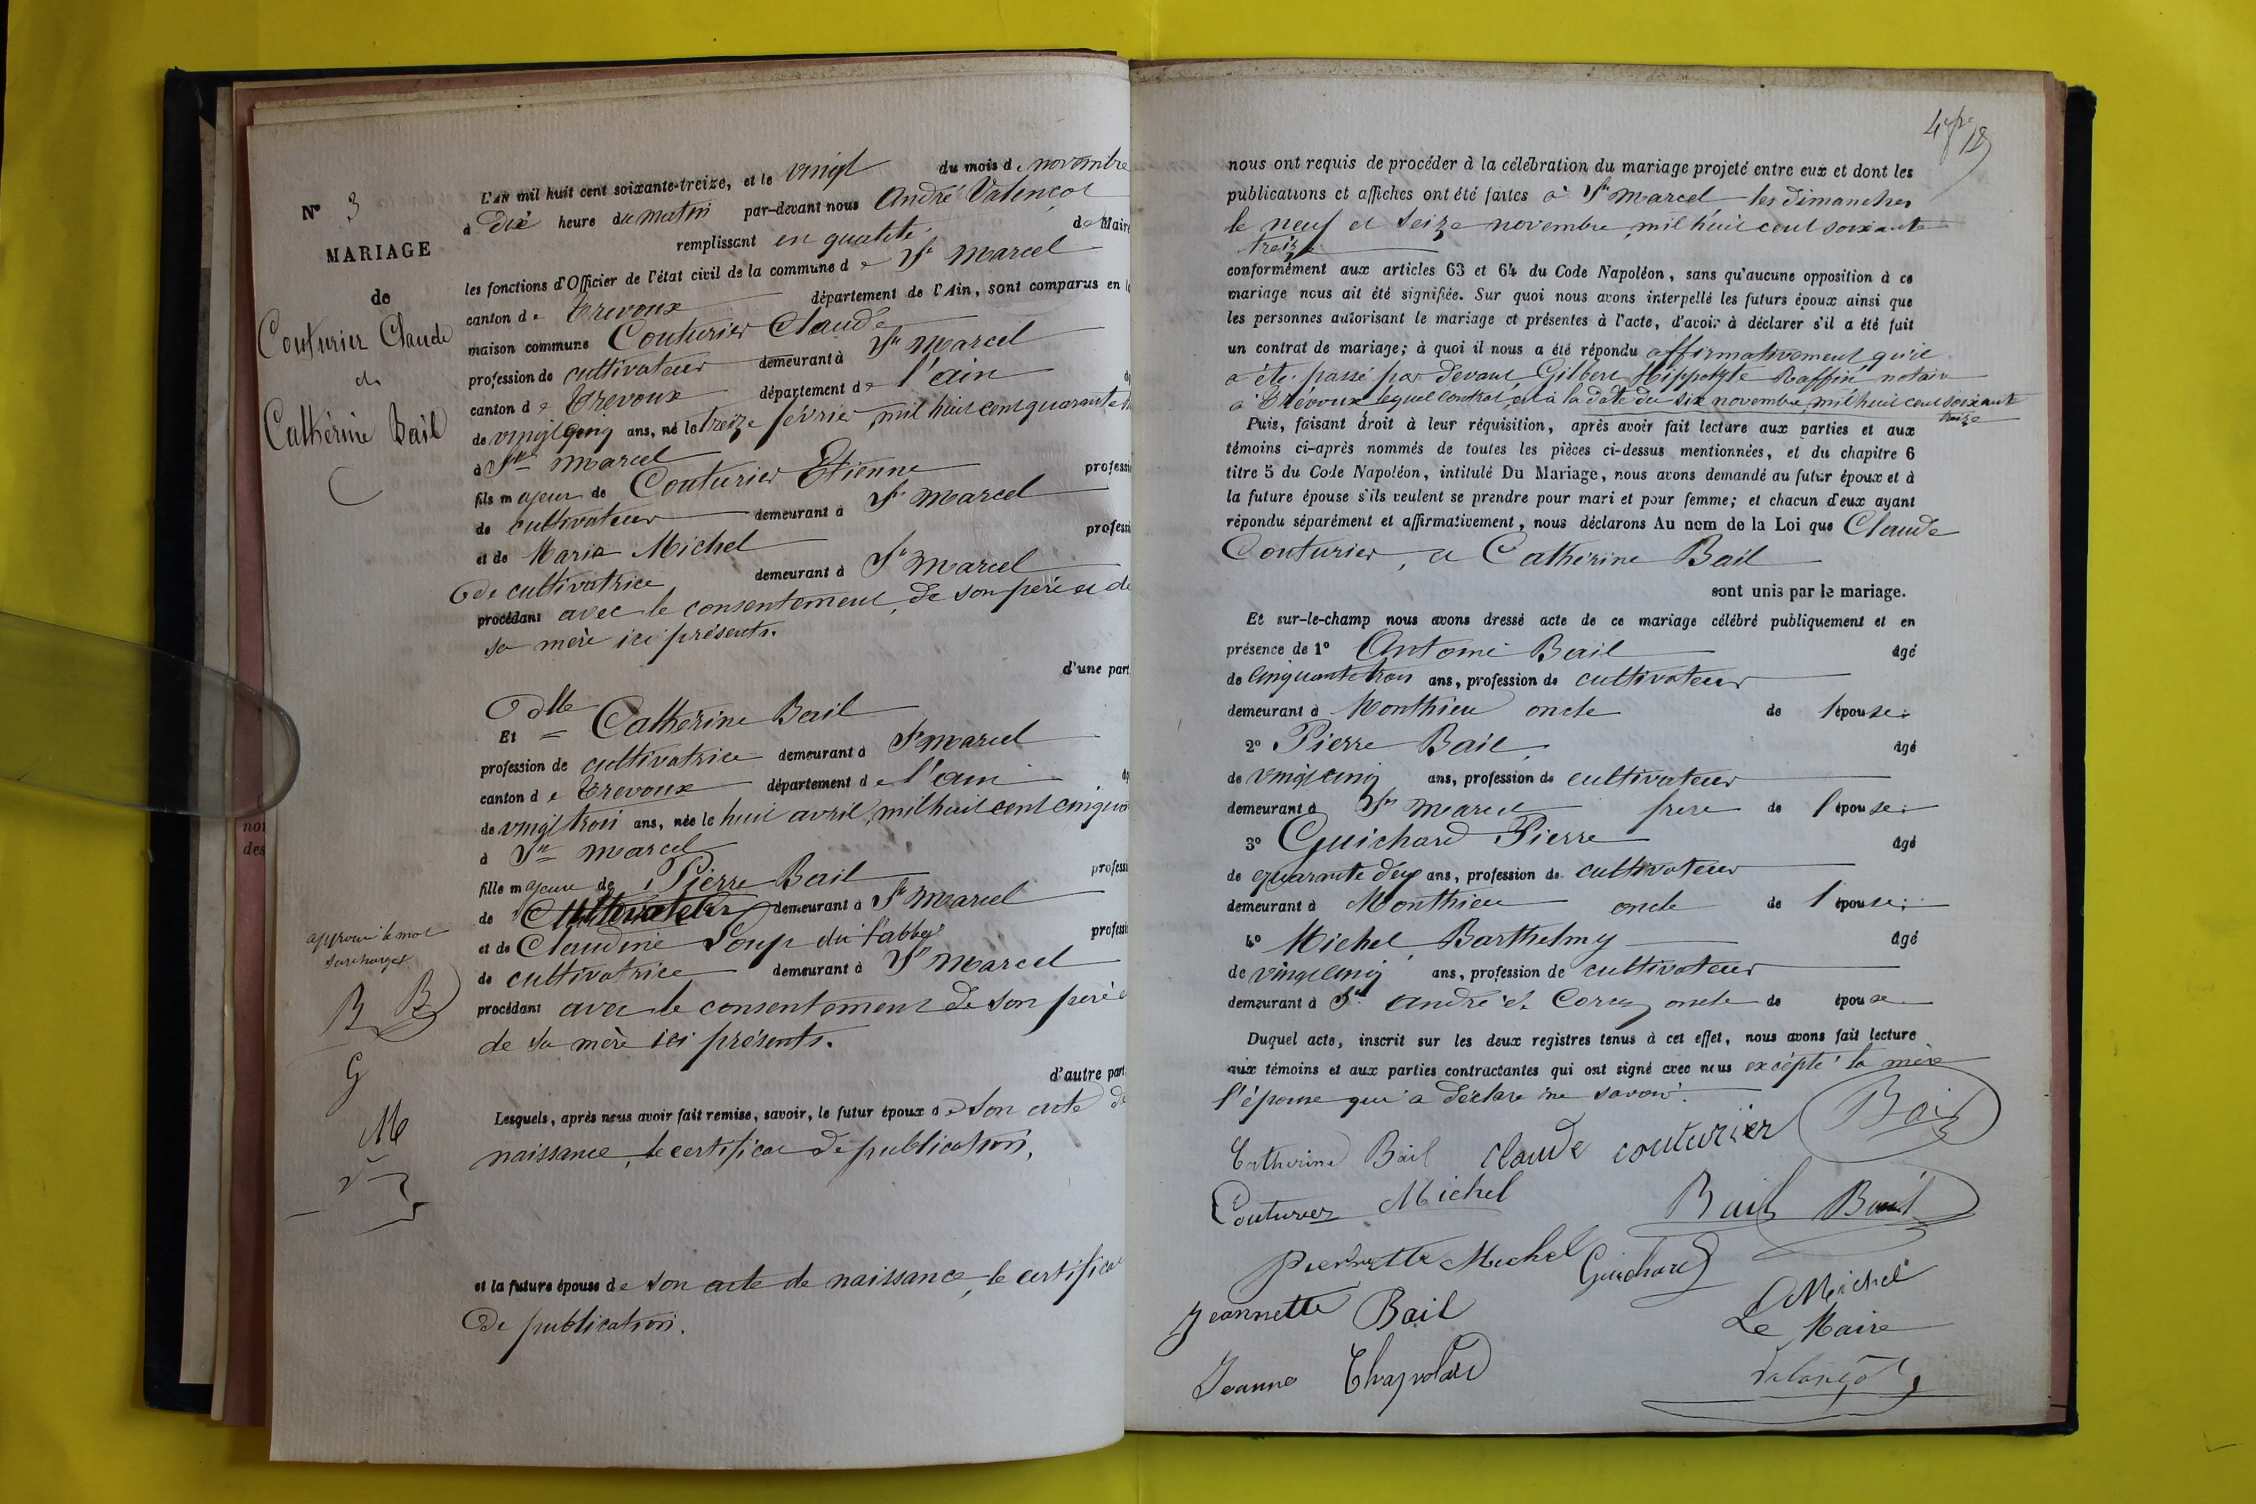 N° 3
MARIAGE
de
Couturier Claude
de
Catherine Bail
approuvé le mot
surchargé
B B
G
M
L'AN mil huit cent soixante-treize, et le vingt du mois de novembre
à dix heure du matin par-devant nous André Valençot
remplissant en qualité de Maire
les fonctions d'Officier de l'état civil de la commune de St Marcel
canton de Trevoux département de l'Ain, sont comparus en la
maison commune Couturier Claude
profession de cultivateur demeurant à St Marcel
canton de Trevoux département de l'ain
de vingt cinq ans, né le treize février mil huit cent quarante
à St Marcel
fils majeur de Couturier Etienne professi
de cultivateur demeurant à St Marcel
et de Marie Michel professi
de cultivatrice demeurant à St Marcel
procédant avec le consentement de son père et de
sa mère ici présents.
d'une part
Et Dlle Catherine Bail
profession de cultivatrice demeurant à St Marcel
canton de Trevoux département de l'ain
de vingt trois ans, née le huit avril mil huit cent cinquan
à St Marcel
fille majeure de Pierre Bail professi
de Cultivateur demeurant à St Marcel
et de Claudine Loup dit l'abbey professi
de cultivatrice demeurant à St Marcel
procédant avec le consentement de son père e
de sa mère ici présents.
d'autre part
Lesquels, après nous avoir fait remise, savoir, le futur époux de son acte de
naissance, le certificat de publication,
et la future épouse de son acte de naissance, le certificat
de publication.
nous ont requis de procéder à la célébration du mariage projeté entre eux et dont les
publications et affiches ont été faites à St Marcel les dimanches
le neuf et seize novembre mil huit cent soixante
treize
conformément aux articles 63 et 64 du Code Napoléon, sans qu'aucune opposition à ce
mariage nous ait été signifiée. Sur quoi nous avons interpellé les futurs époux ainsi que
les personnes autorisant le mariage et présentes à l'acte, d'avoir à déclarer s'il a été fait
un contrat de mariage; à quoi il nous a été répondu affirmativement qu'il
a été passé par devant Gilbert Hippolyte Raffin notaire
à Trévoux lequel contrat est à la date du six novembre mil huit cent soixante
treize
Puis, faisant droit à leur réquisition, après avoir fait lecture aux parties et aux
témoins ci-après nommés de toutes les pièces ci-dessus mentionnées, et du chapitre 6
titre 5 du Code Napoléon, intitulé Du Mariage, nous avons demandé au futur époux et à
la future épouse s'ils veulent se prendre pour mari et pour femme; et chacun d'eux ayant
répondu séparément et affirmativement, nous déclarons Au nom de la Loi que Claude
Couturier, et Catherine Bail
sont unis par le mariage.
Et sur-le-champ nous avons dressé acte de ce mariage célébré publiquement et en
présence de 1° Antoine Bail âgé
de cinquante trois ans, profession de cultivateur
demeurant à Monthieu oncle de l'épouse;
2° Pierre Bail, âgé
de vingt cinq ans, profession de cultivateur
demeurant à St Marcel frere de l'épouse;
3° Guichard Pierre âgé
de quarante deux ans, profession de cultivateur
demeurant à Monthieu oncle de l'épouse;
4° Michel Barthelmy âgé
de vingt cinq ans, profession de cultivateur
demeurant à St André de Corcy oncle de épouse
Duquel acte, inscrit sur les deux registres tenus à cet effet, nous avons fait lecture
aux témoins et aux parties contractantes qui ont signé avec nous excépté la mère
l'épouse qui a déclaré ne savoir.
Catherine Bail claude couturier Bail
Couturier Michel Bail Bail
Pierrette Michel Guichard
Jeannette Bail Michel
Le Maire
Jeanne Chapolard Valençot